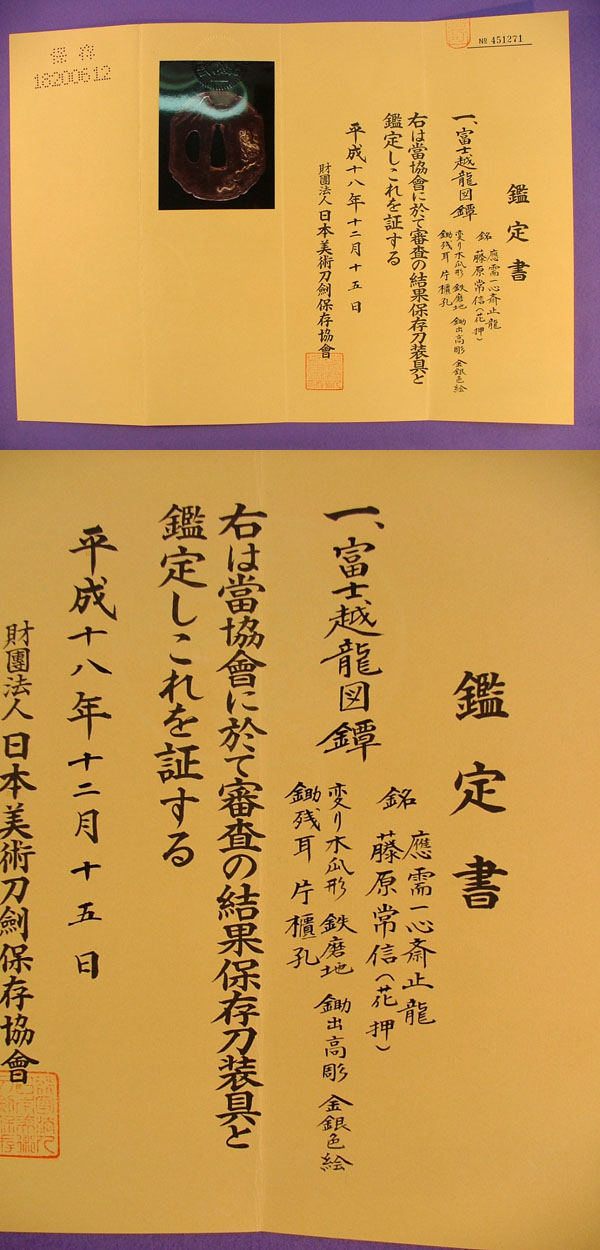 保存
18200612
№ 451271
鑑定書
一、富士越龍図鐔
銘 應需一心斎止龍
藤原常信（花押）
変り木瓜形 鉄磨地 鋤出高彫 金銀色絵
鋤残耳 片櫃孔
右は當協會に於て審査の結果保存刀装具と
鑑定しこれを証する
平成十八年十二月十五日
財團法人日本美術刀劍保存協會
鑑定書
一、富士越龍図鐔
銘 應需一心斎止龍
藤原常信（花押）
変り木瓜形 鉄磨地 鋤出高彫 金銀色絵
鋤残耳 片櫃孔
右は當協會に於て審査の結果保存刀装具と
鑑定しこれを証する
平成十八年十二月十五日
財團法人日本美術刀劍保存協會